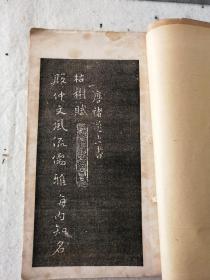 唐褚遂良書
枯樹賦
殷仲文風流儒雅海內知名